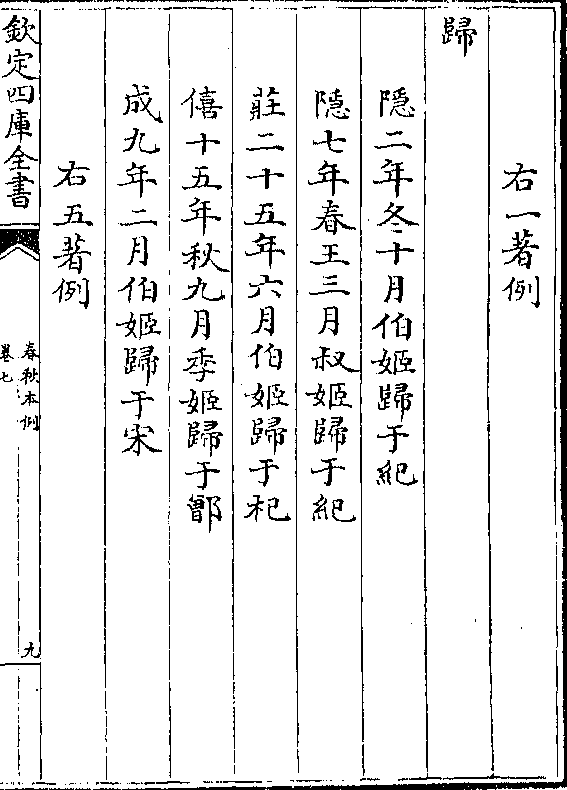 右一著例
歸
隱二年冬十月伯姬歸于紀
隱七年春王三月叔姬歸于紀
莊二十五年六月伯姬歸于杞
僖十五年秋九月季姬歸于鄫
成九年二月伯姬歸于宋
右五著例
欽定四庫全書
春秋本例
卷七
九